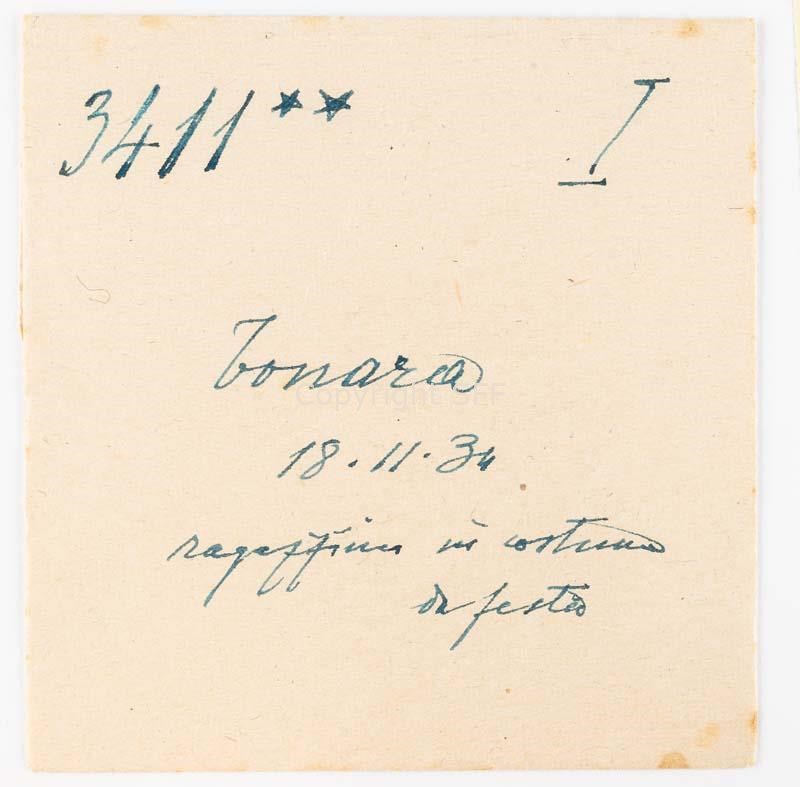 3411** I
Tonara
18.11.34
ragazzina in costume
da festa
Copyright SFF